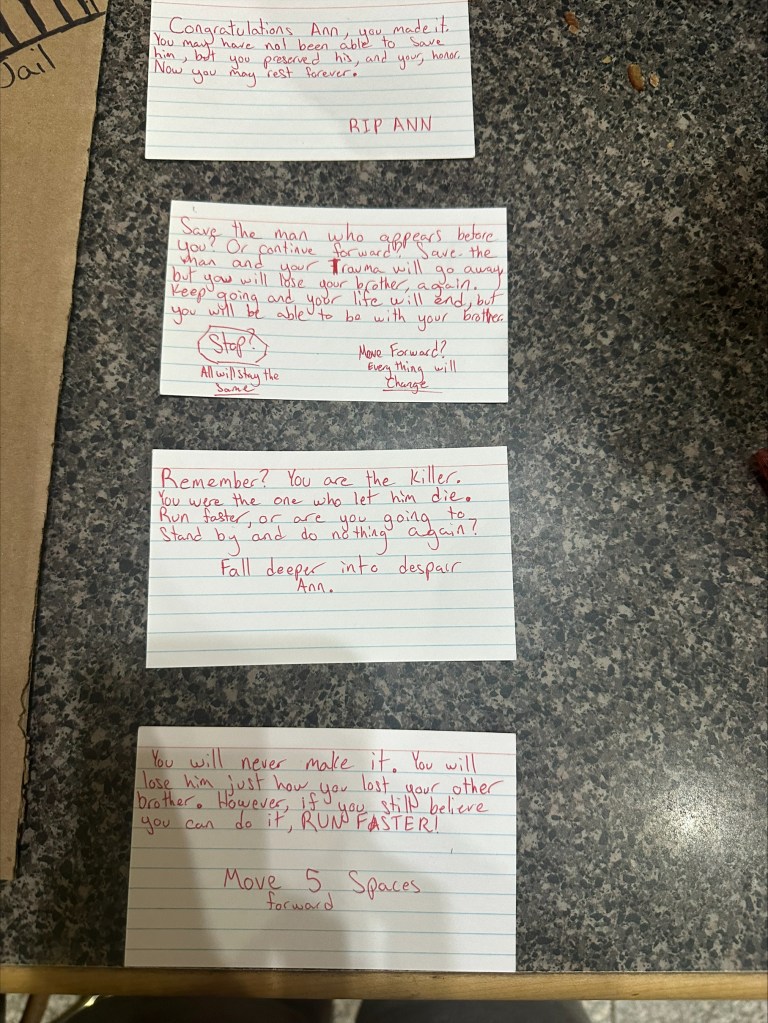 Jail
Congratulations Ann, you made it.
You may have not been able to save
him, but you preserved his, and your, honor.
Now you may rest forever.
RIP ANN
Save the man who appears before
you? Or continue forward? Save the
man and your Trauma will go away,
but you will lose your brother, again.
Keep going and your life will end, but
you will be able to be with your brother.
Stop?
All will stay the
Same
Move Forward?
Every thing will
Change
Remember? You are the killer.
You were the one who let him die.
Run faster, or are you going to
Stand by and do nothing again?
Fall deeper into despair
Ann.
You will never make it. You will
lose him just how you lost your other
brother. However, if you still believe
you can do it, RUN FASTER!
Move 5 Spaces
forward